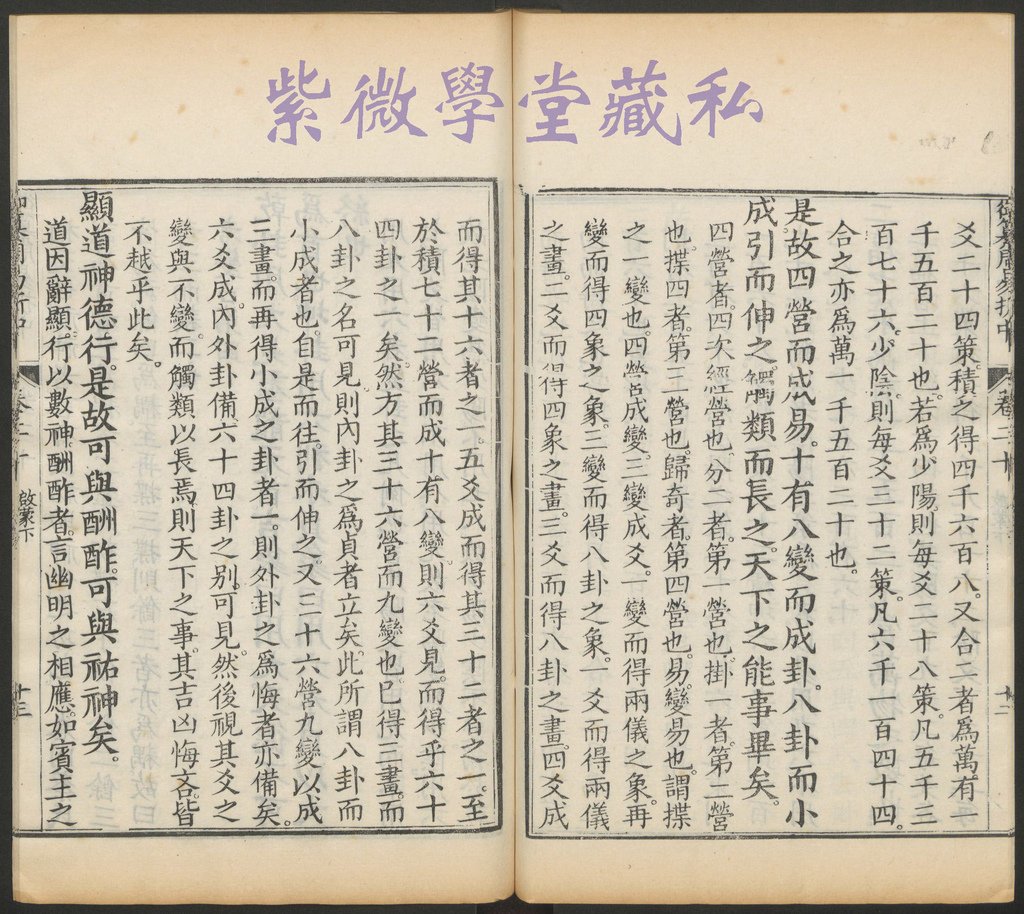 紫微學堂藏私
爻二十四策積之得四千六百八又合二者為萬有一
千五百二十也。若為少陽。則每爻二十八策。凡五千三
百七十六。少陰。則每爻三十二策。凡六千一百四十四。
合之亦為萬一千五百二十也。
是故四營而成易。十有八變而成卦。八卦而小
成。引而伸之。觸類而長之。天下之能事畢矣。
四營者。四次經營也。分二者。第一營也。掛一者。第二營
也。揲四者。第三營也。歸奇者。第四營也。易。變易也。謂揲
之一變也。四營成變。三變成爻。一變而得兩儀之象。再
變而得四象之象。三變而得八卦之象。一爻而得兩儀
之畫。二爻而得四象之畫。三爻而得八卦之畫。四爻成
而得其十六者之一。五爻成而得其三十二者之一。至
於積七十二營而成十有八變。則六爻見。而得乎六十
四卦之一矣。然方其三十六營而九變也。已得三畫。而
八卦之名可見。則內卦之為貞者立矣。此所謂八卦而
小成者也。自是而往。引而伸之。又三十六營九變以成
三畫。而再得小成之卦者一。則外卦之為悔者亦備矣。
六爻成。內外卦備。六十四卦之別可見。然後視其爻之
變與不變。而觸類以長焉。則天下之事。其吉凶悔吝。皆
不越乎此矣。
顯道神德行。是故可與酬酢。可與祐神矣。
道因辭顯。行以數神。酬酢者。言幽明之相應。如賓主之
啟蒙下
十三
卷二十
十二